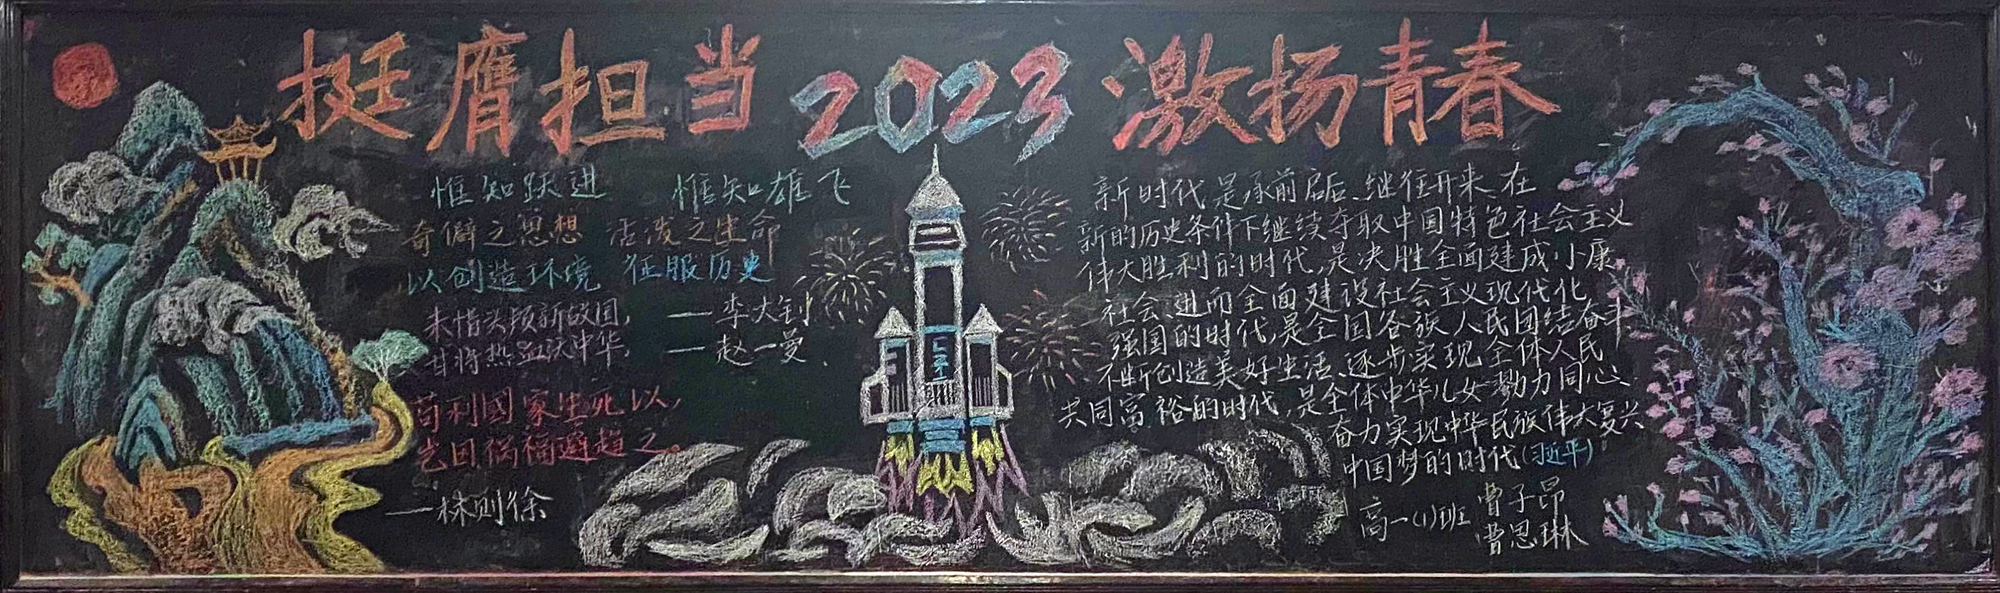 挺膺担当2023激扬青春
惟知跃进 惟知雄飞
奇僻之思想 活泼之生命
以创造环境 征服历史
——李大钊
未惜头颅新故国，
甘将热血沃中华，
——赵一曼
苟利國家生死以，
岂因祸福避趋之。
——林则徐
新时代是承前启后、继往开来、在
新的历史条件下继续夺取中国特色社会主义
伟大胜利的时代，是决胜全面建成小康
社会、进而全面建设社会主义现代化
强国的时代，是全国各族人民团结奋斗
不断创造美好生活、逐步实现全体人民
共同富裕的时代，是全体中华儿女勠力同心、
奋力实现中华民族伟大复兴
中国梦的时代(习近平)
高一(1)班 曹子昂
曹思琳